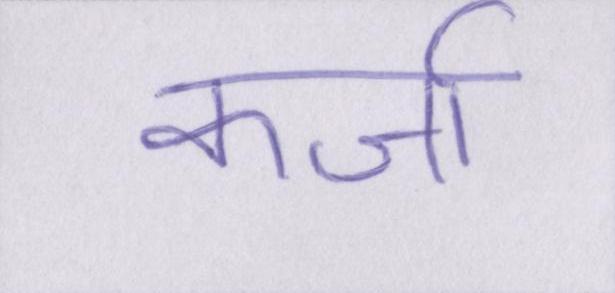 कर्जा